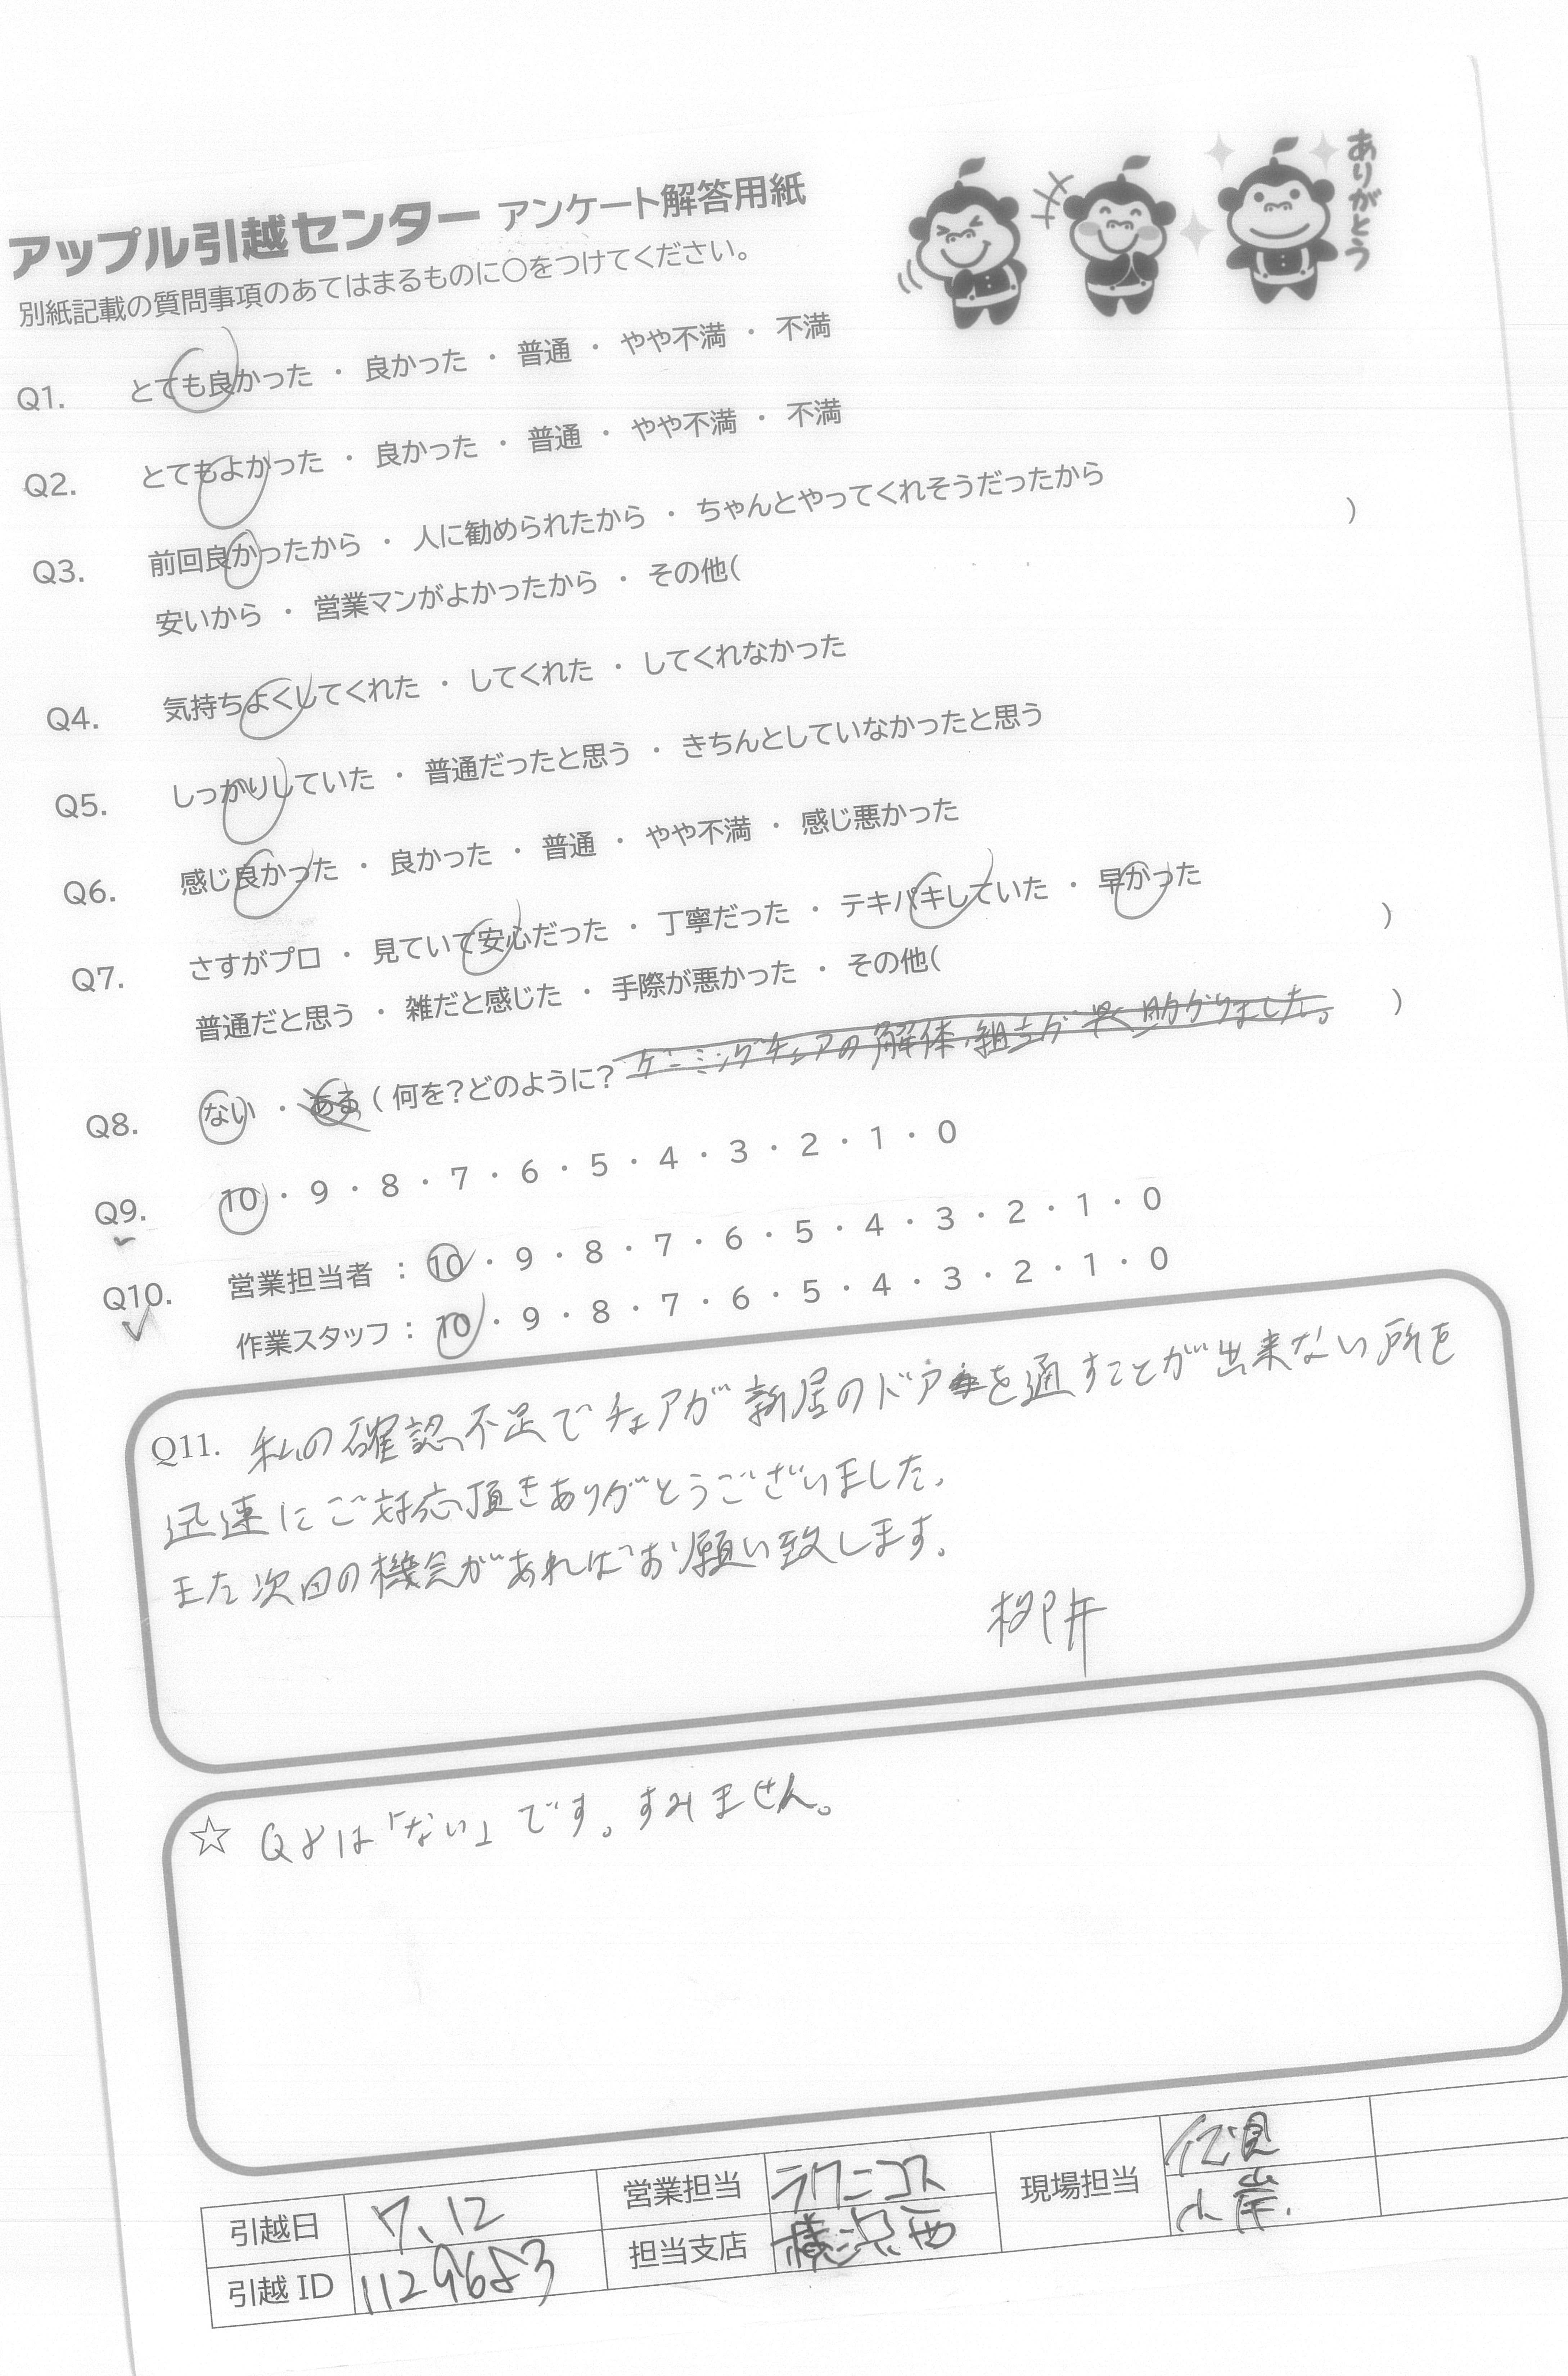 アップル引越センター アンケート解答用紙
ありがとう
別紙記載の質問事項のあてはまるものに〇をつけてください。
Q1. とても良かった ・ 良かった ・ 普通 ・ やや不満 ・ 不満
Q2. とてもよかった ・ 良かった ・ 普通 ・ やや不満 ・ 不満
Q3. 前回良かったから ・ 人に勧められたから ・ ちゃんとやってくれそうだったから
安いから ・ 営業マンがよかったから ・ その他( )
Q4. 気持ちよくしてくれた ・ してくれた ・ してくれなかった
Q5. しっかりしていた ・ 普通だったと思う ・ きちんとしていなかったと思う
Q6. 感じ良かった ・ 良かった ・ 普通 ・ やや不満 ・ 感じ悪かった
Q7. さすがプロ ・ 見ていて安心だった ・ 丁寧だった ・ テキパキしていた ・ 早かった
普通だと思う ・ 雑だと感じた ・ 手際が悪かった ・ その他( )
Q8. ない ・ ある ( 何を?どのように? ゲーミングチェアの解体、組立が早く助かりました。 )
Q9. 10 ・ 9 ・ 8 ・ 7 ・ 6 ・ 5 ・ 4 ・ 3 ・ 2 ・ 1 ・ 0
Q10. 営業担当者 : 10 ・ 9 ・ 8 ・ 7 ・ 6 ・ 5 ・ 4 ・ 3 ・ 2 ・ 1 ・ 0
作業スタッフ : 10 ・ 9 ・ 8 ・ 7 ・ 6 ・ 5 ・ 4 ・ 3 ・ 2 ・ 1 ・ 0
Q11. 私の確認不足でチェアが新居のドアを通すことが出来ない所を
迅速にご対応頂きありがとうございました。
また次回の機会があればお願い致します。
柳井
☆ Q8は「ない」です。すみません。
引越日 7.12 営業担当 ラクニコス 現場担当 伏見
引越ID 1129683 担当支店 横浜西 小岸.